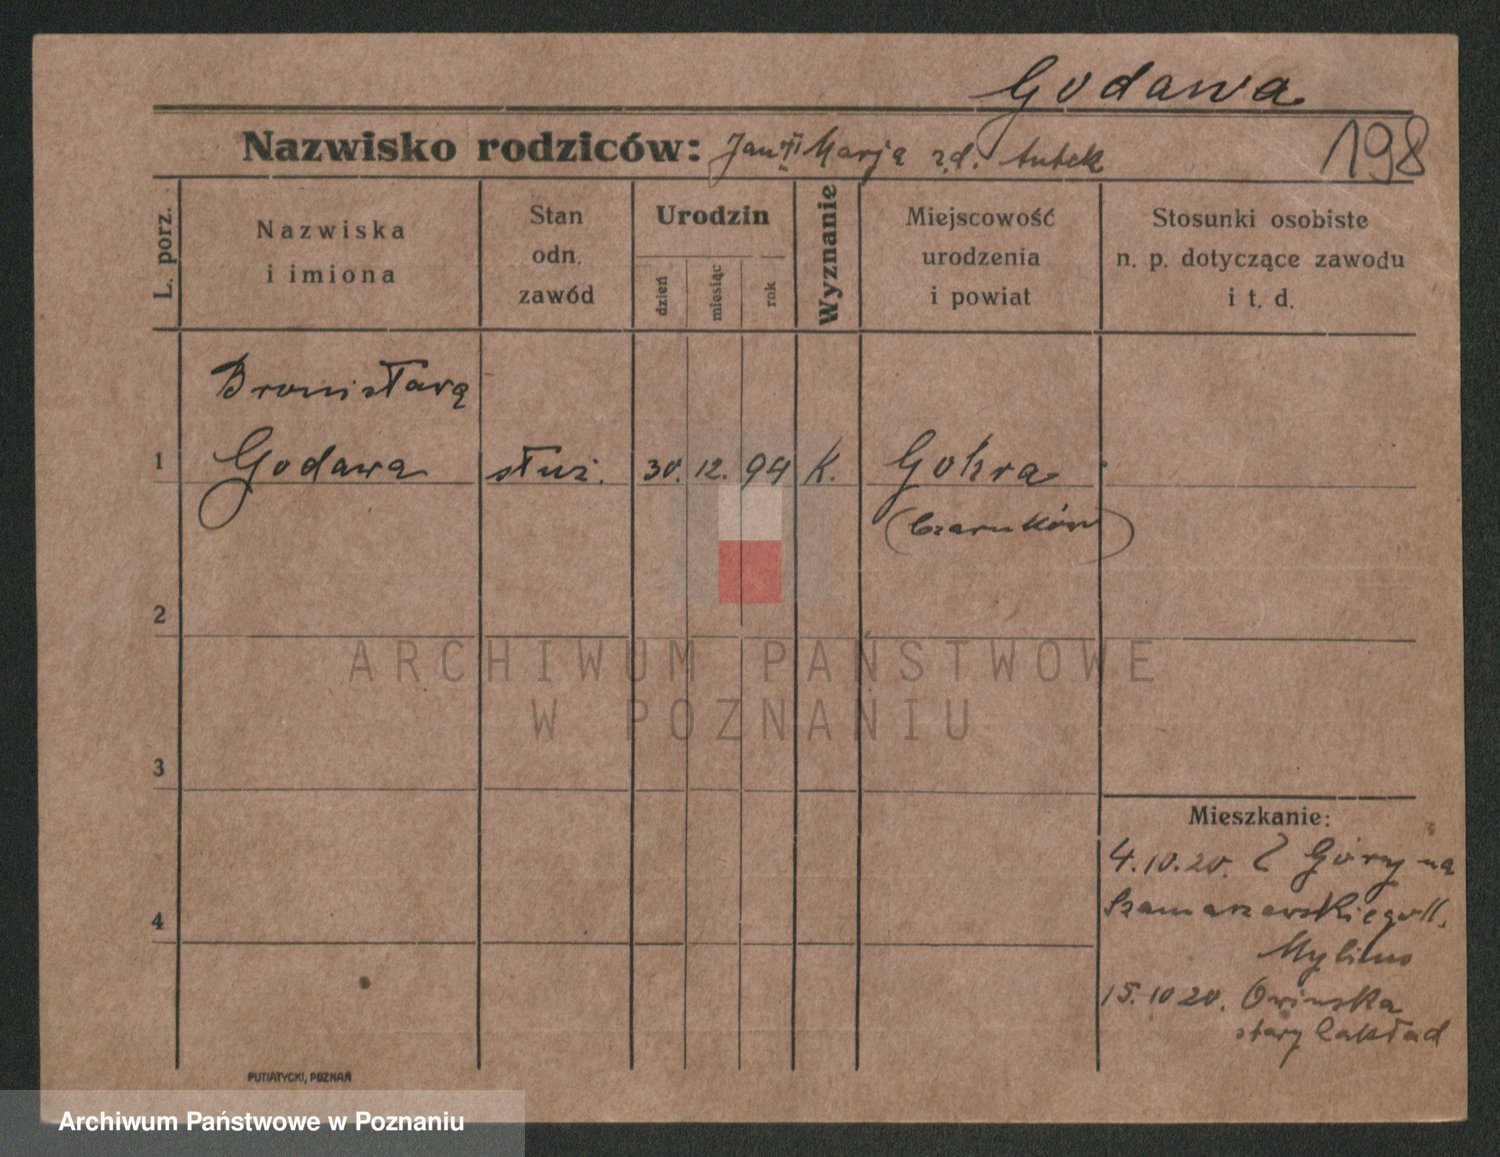 Godawa
Nazwisko rodziców: Jan i Marja z d. Lutek
198
L. porz.
Nazwiska
i imiona
Stan
odn.
zawód
Urodzin
dzień
miesiąc
rok
Wyznanie
Miejscowość
urodzenia
i powiat
Stosunki osobiste
n. p. dotyczące zawodu
i t. d.
Bronisława
1 Godawa służ. 30. 12. 94 K. Gohra
(Czarnków)
2
ARCHIWUM PAŃSTWOWE
W POZNANIU
3
Mieszkanie:
4.10.20. Z Góry na
Szamarzewskiego 11.
4
Mylius
15.10 20. Owinska
stary Zakład
PUTIATYCKI, POZNAŃ
Archiwum Państwowe w Poznaniu